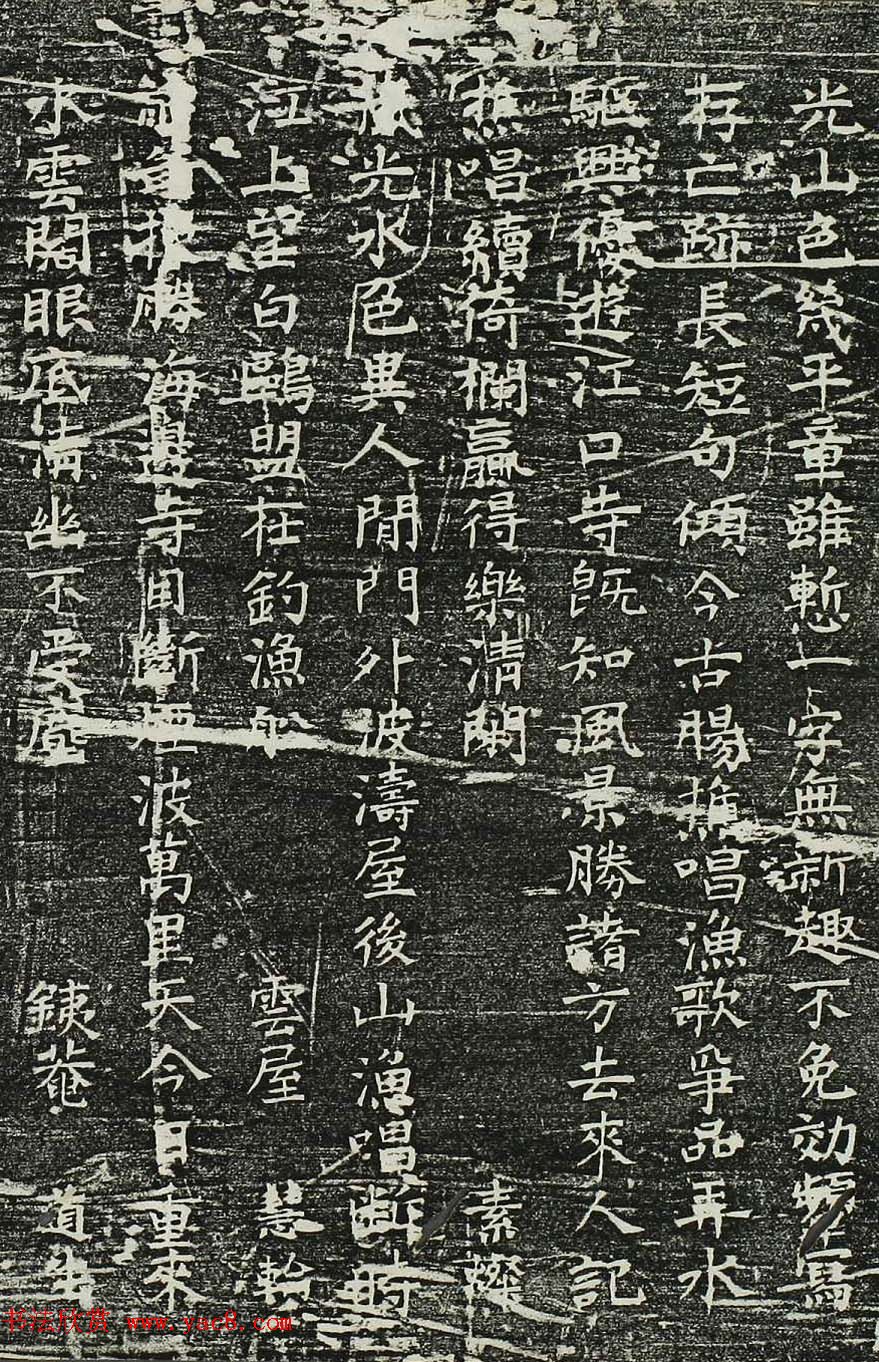 光山色幾平章雖慙一字無新趣不免効顰寫
存亡跡長短句傾今古腸樵唱漁歌爭品弄水
驅興優遊江口寺既知風景勝諸方去來人記
樵唱續倚欄贏得樂清閑 素璨
光水色異人間門外波濤屋後山漁唱斷時
江上望白鷗盟在釣漁舟 雲屋 慧輪
勝海邊寺目斷煙波萬里天今日重來
水雲閣眼底清幽不受塵 銕菴 道生
书法欣赏 www.yac8.com